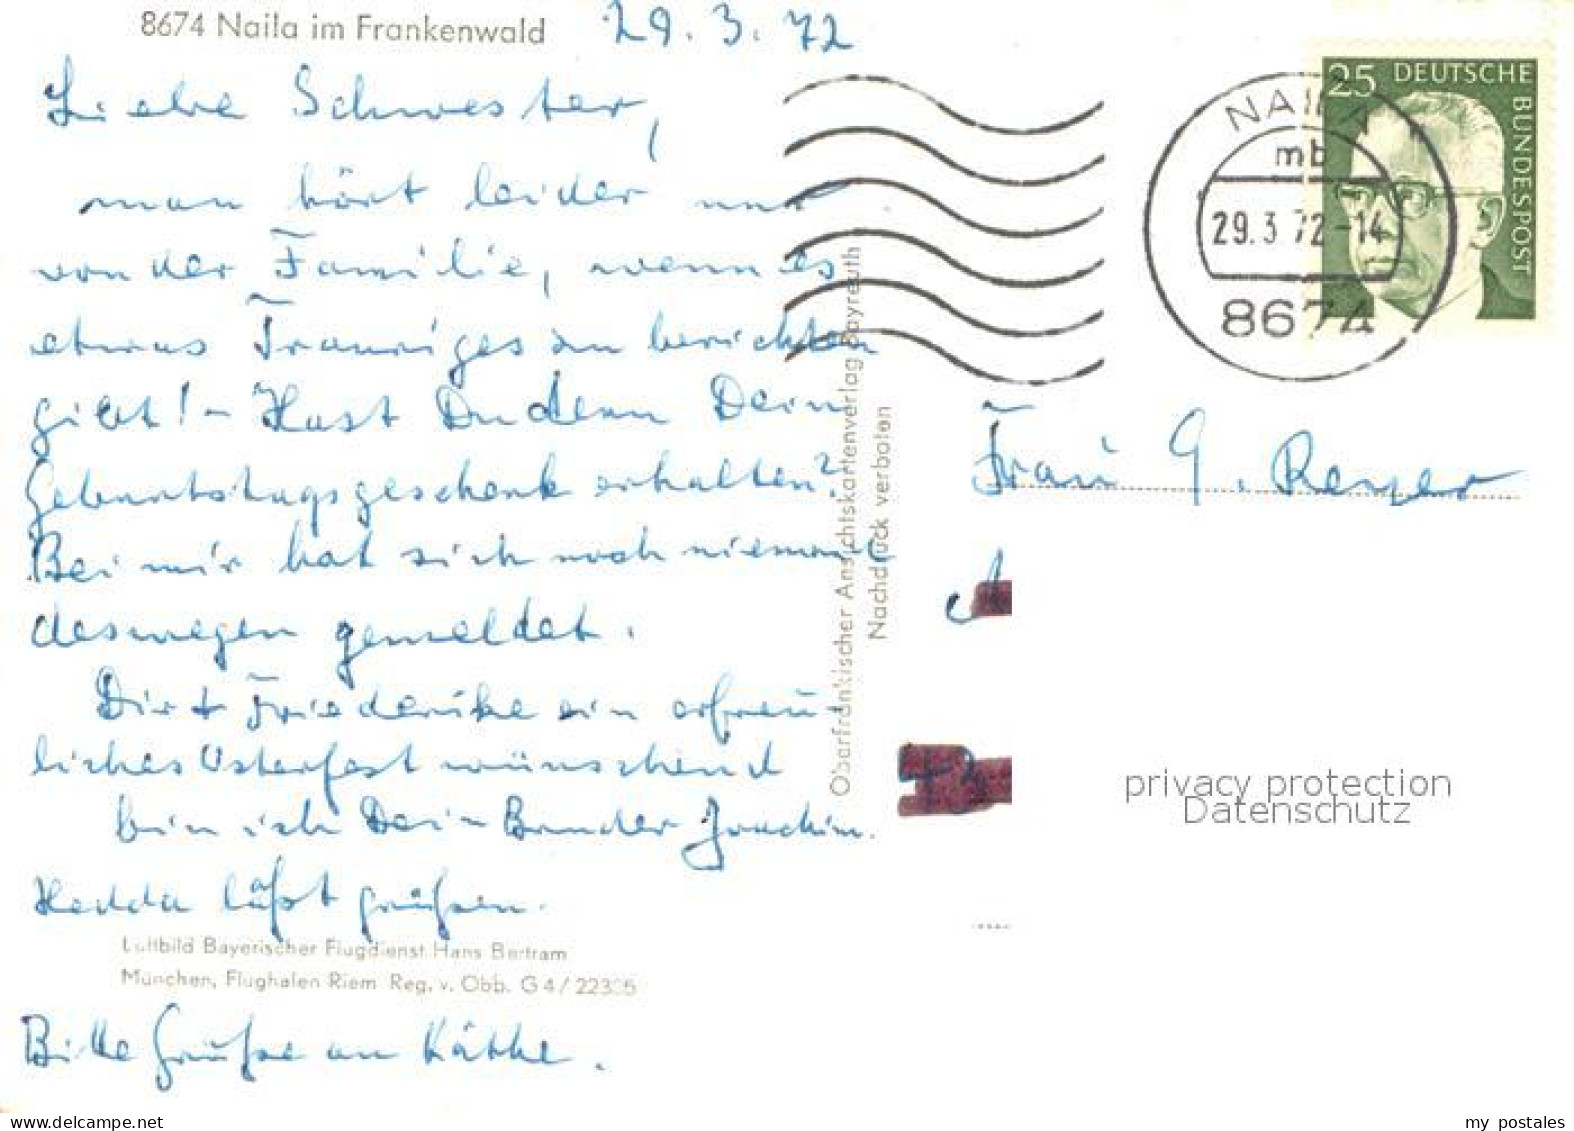 8674 Naila im Frankenwald
29.3.72
Liebe Schwester,
man hört leider nur
von der Familie, wenn es
etwas Trauriges zu berichten
gibt! - Hast Du denn Dein
Geburtstagsgeschenk erhalten?
Bei mir hat sich noch niemand
deswegen gemeldet.
Dir + Friederike ein erfreu-
liches Osterfest wünschend
bin ich Dein Bruder Joachim.
Hedda läßt grüßen.
Luftbild Bayerischer Flugdienst Hans Bertram
München, Flughafen Riem Reg. v. Obb. G 4/
Bitte Grüße an Käthe.
Oberfränkischer Ansichtskartenverlag Bayreuth
Nachdruck verboten
25 DEUTSCHE BUNDESPOST
NAILA
mb
29.3.72-14
8674
Frau G.
privacy protection
Datenschutz
my postales